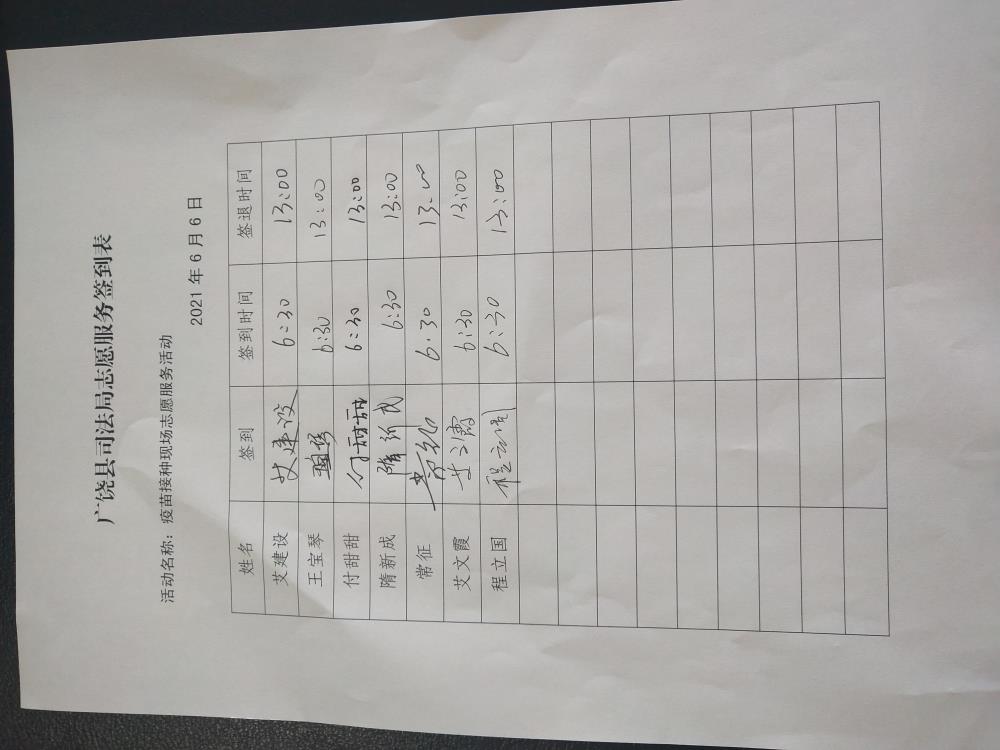 广饶县司法局志愿服务签到表
活动名称：疫苗接种现场志愿服务活动
2021年6月6日
姓名 签到 签到时间 签退时间
艾建设 艾建设 6:30 13:00
王宝琴 6:30 13:00
付甜甜 付甜甜 6:30 13:00
隋新成 隋新成 6:30 13:00
常征 6:30 13:00
艾文霞 艾文霞 6:30 13:00
程立国 程立国 6:30 13:00